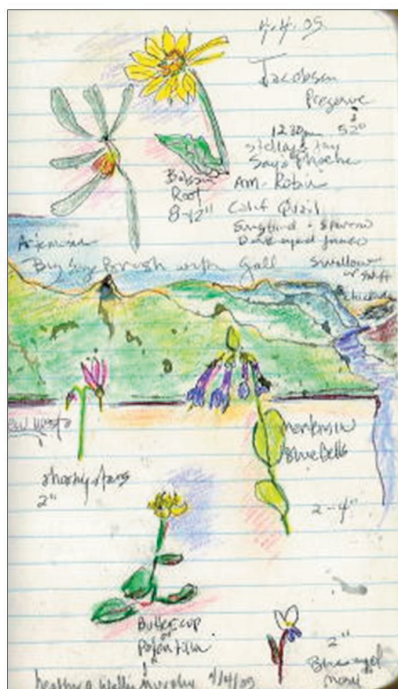 4.4.05.
Jacobsen
Preserve
12:30pm 52°
Stellars Jay
Says Phoebe
Am. Robin
Calif Quail
Song bird + Sparrow
Dark eyed junco
Swallow
or swift
Balsam
Root
8-12"
Big Sage brush with gall
shooting stars
2"
mertensia
Blue bells
2-4"
Buttercup
or
Potentilla
2"
Blue eyed
mary
heather a wallis murphy 4/4/05